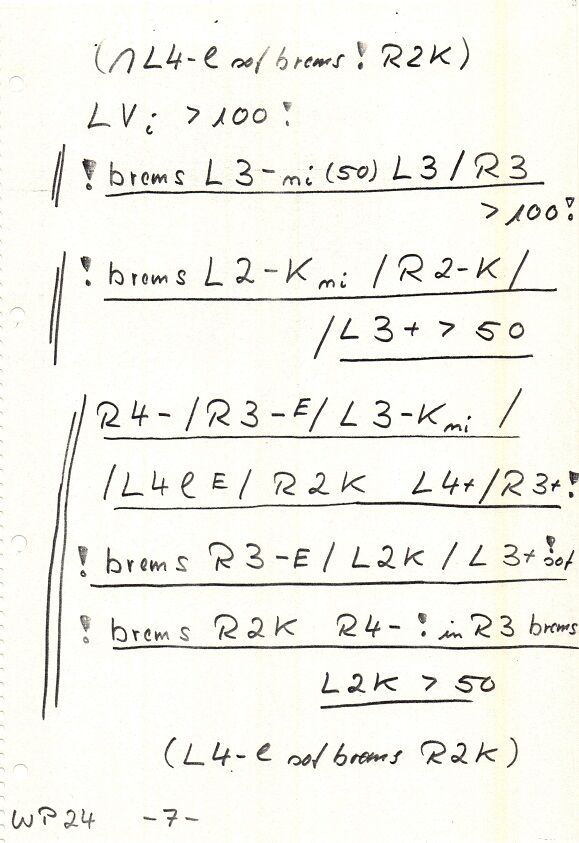 (∩L4-e sof brems ! R2K)
LVi >100 !
! brems L3-mi (50) L3/R3
>100 !
! brems L2-Kmi /R2-K/
/L3+ > 50
R4-/R3-E/L3-Kmi /
/L4eE/R2K L4+/R3+!
! brems R3-E/L2K/L3+ ! sof
! brems R2K R4- ! in R3 brems
L2K > 50
(L4-e sof brems R2K)
WP24 -7-